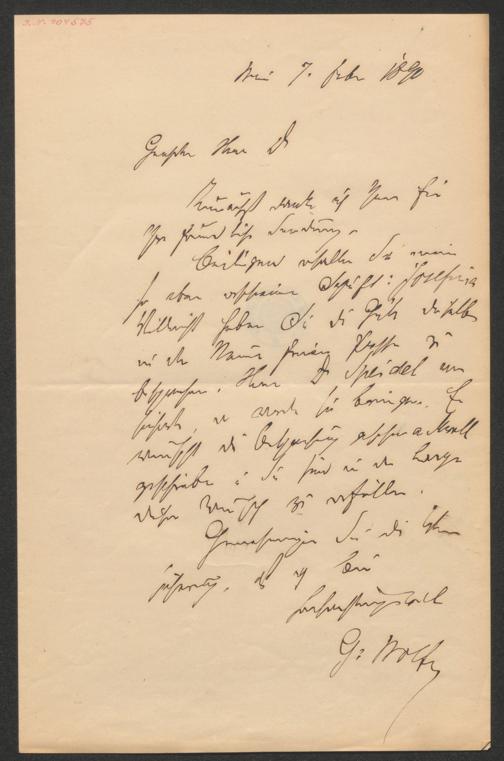 J.N. 204575
Wien 7. Febr 1890
Geehrter Herr Dr
Zunächst danke ich Ihnen für
Ihre freundliche Sendung.
Beiliegend erhalten Sie meine
so eben erschienene Schrift: Josefina
Vielleicht haben Sie die Güte dieselbe
in der Neuen freien Presse zu
besprechen. Herr Dr Speidel
er werde sie bringen. Er
wünscht die Besprechung
geschrieben u Sie sind in der Lage
diesen Wunsch zu erfüllen.
Genehmigen Sie die
daß ich bin
Hochachtungsvoll
G. Wolf